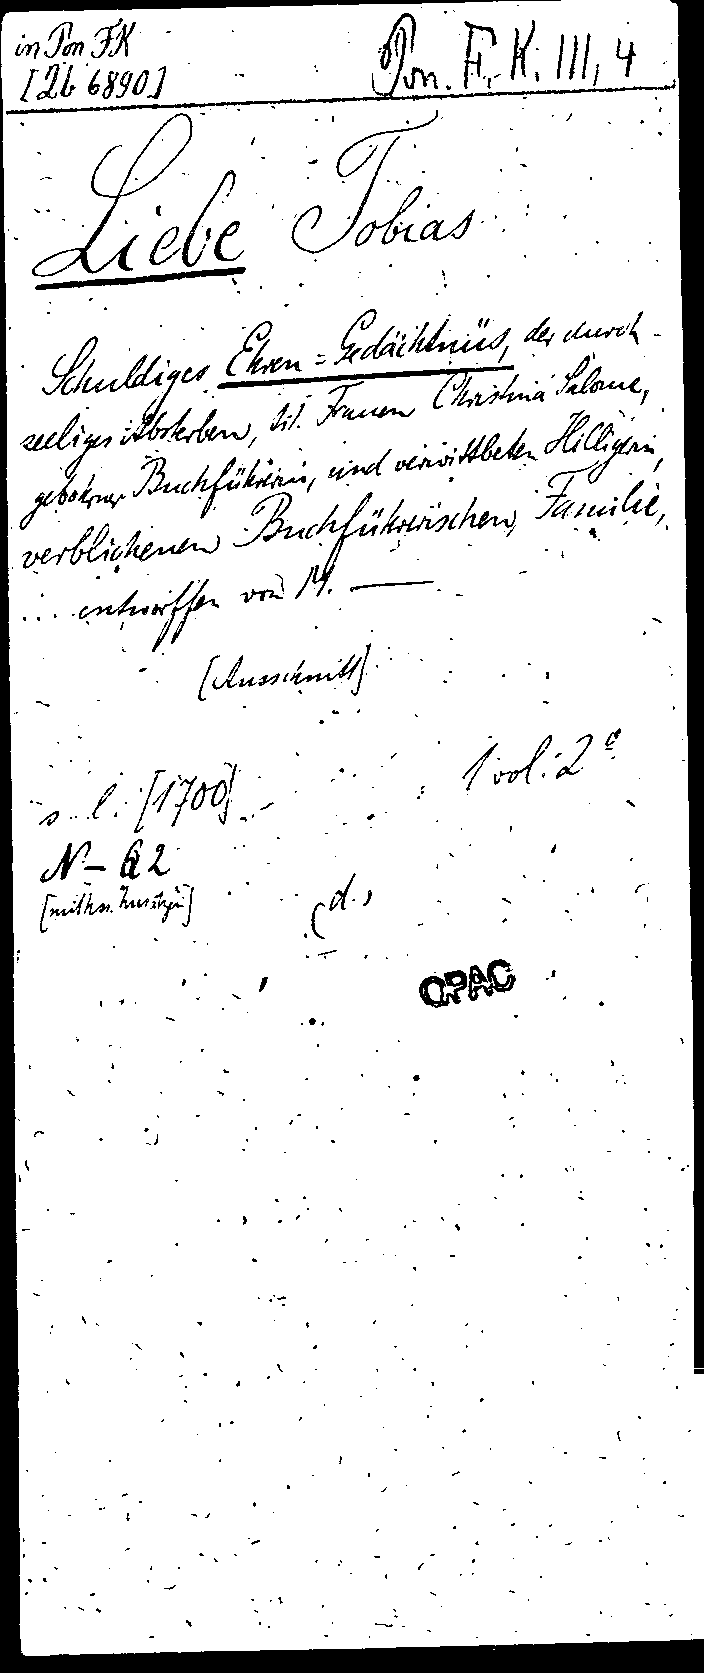 in Pon FK
[2b 6890]
Pon. F. K. III, 4
Liebe Tobias
Schuldiges Ehren=Gedächtnüs, der durch
seeliges Absterben, tit. Frauen Christina Salome,
gebohrner Buchführerin, und verwittbeten Hilligerin,
verblichenen Buchführerischen Familie,
... entworffen von M. —
[Ausschnitt]
s. l. [1700]
1 vol: 2°
N-62
(d.)
OPAC